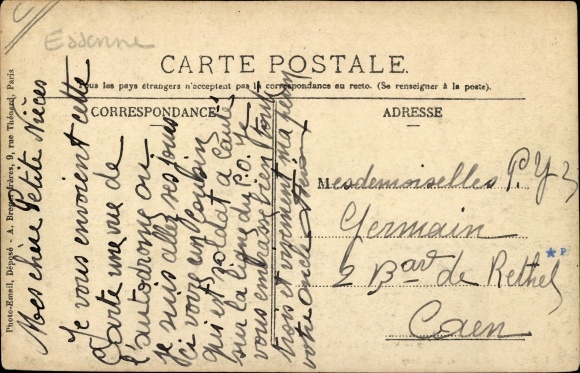 Essonne
CARTE POSTALE
Tous les pays étrangers n'acceptent pas la correspondance au recto. (Se renseigner à la poste).
CORRESPONDANCE
ADRESSE
Photo-Email, Déposé - A. Breger frères, 9, rue Thénard, Paris
Mes chère Petite Nièces
Je vous envoient cette
Carte une vue de
l'autodrome ou
je suis allez ses jours
ci voire un Cousin
qui est soldat à
sur la ligne du P.O. Je
vous embrasse bien Tous
trois et vivement ma perm
votre oncle
Mesdemoiselles P. Y
Germain
2 Bard de Rethel
Caen
P